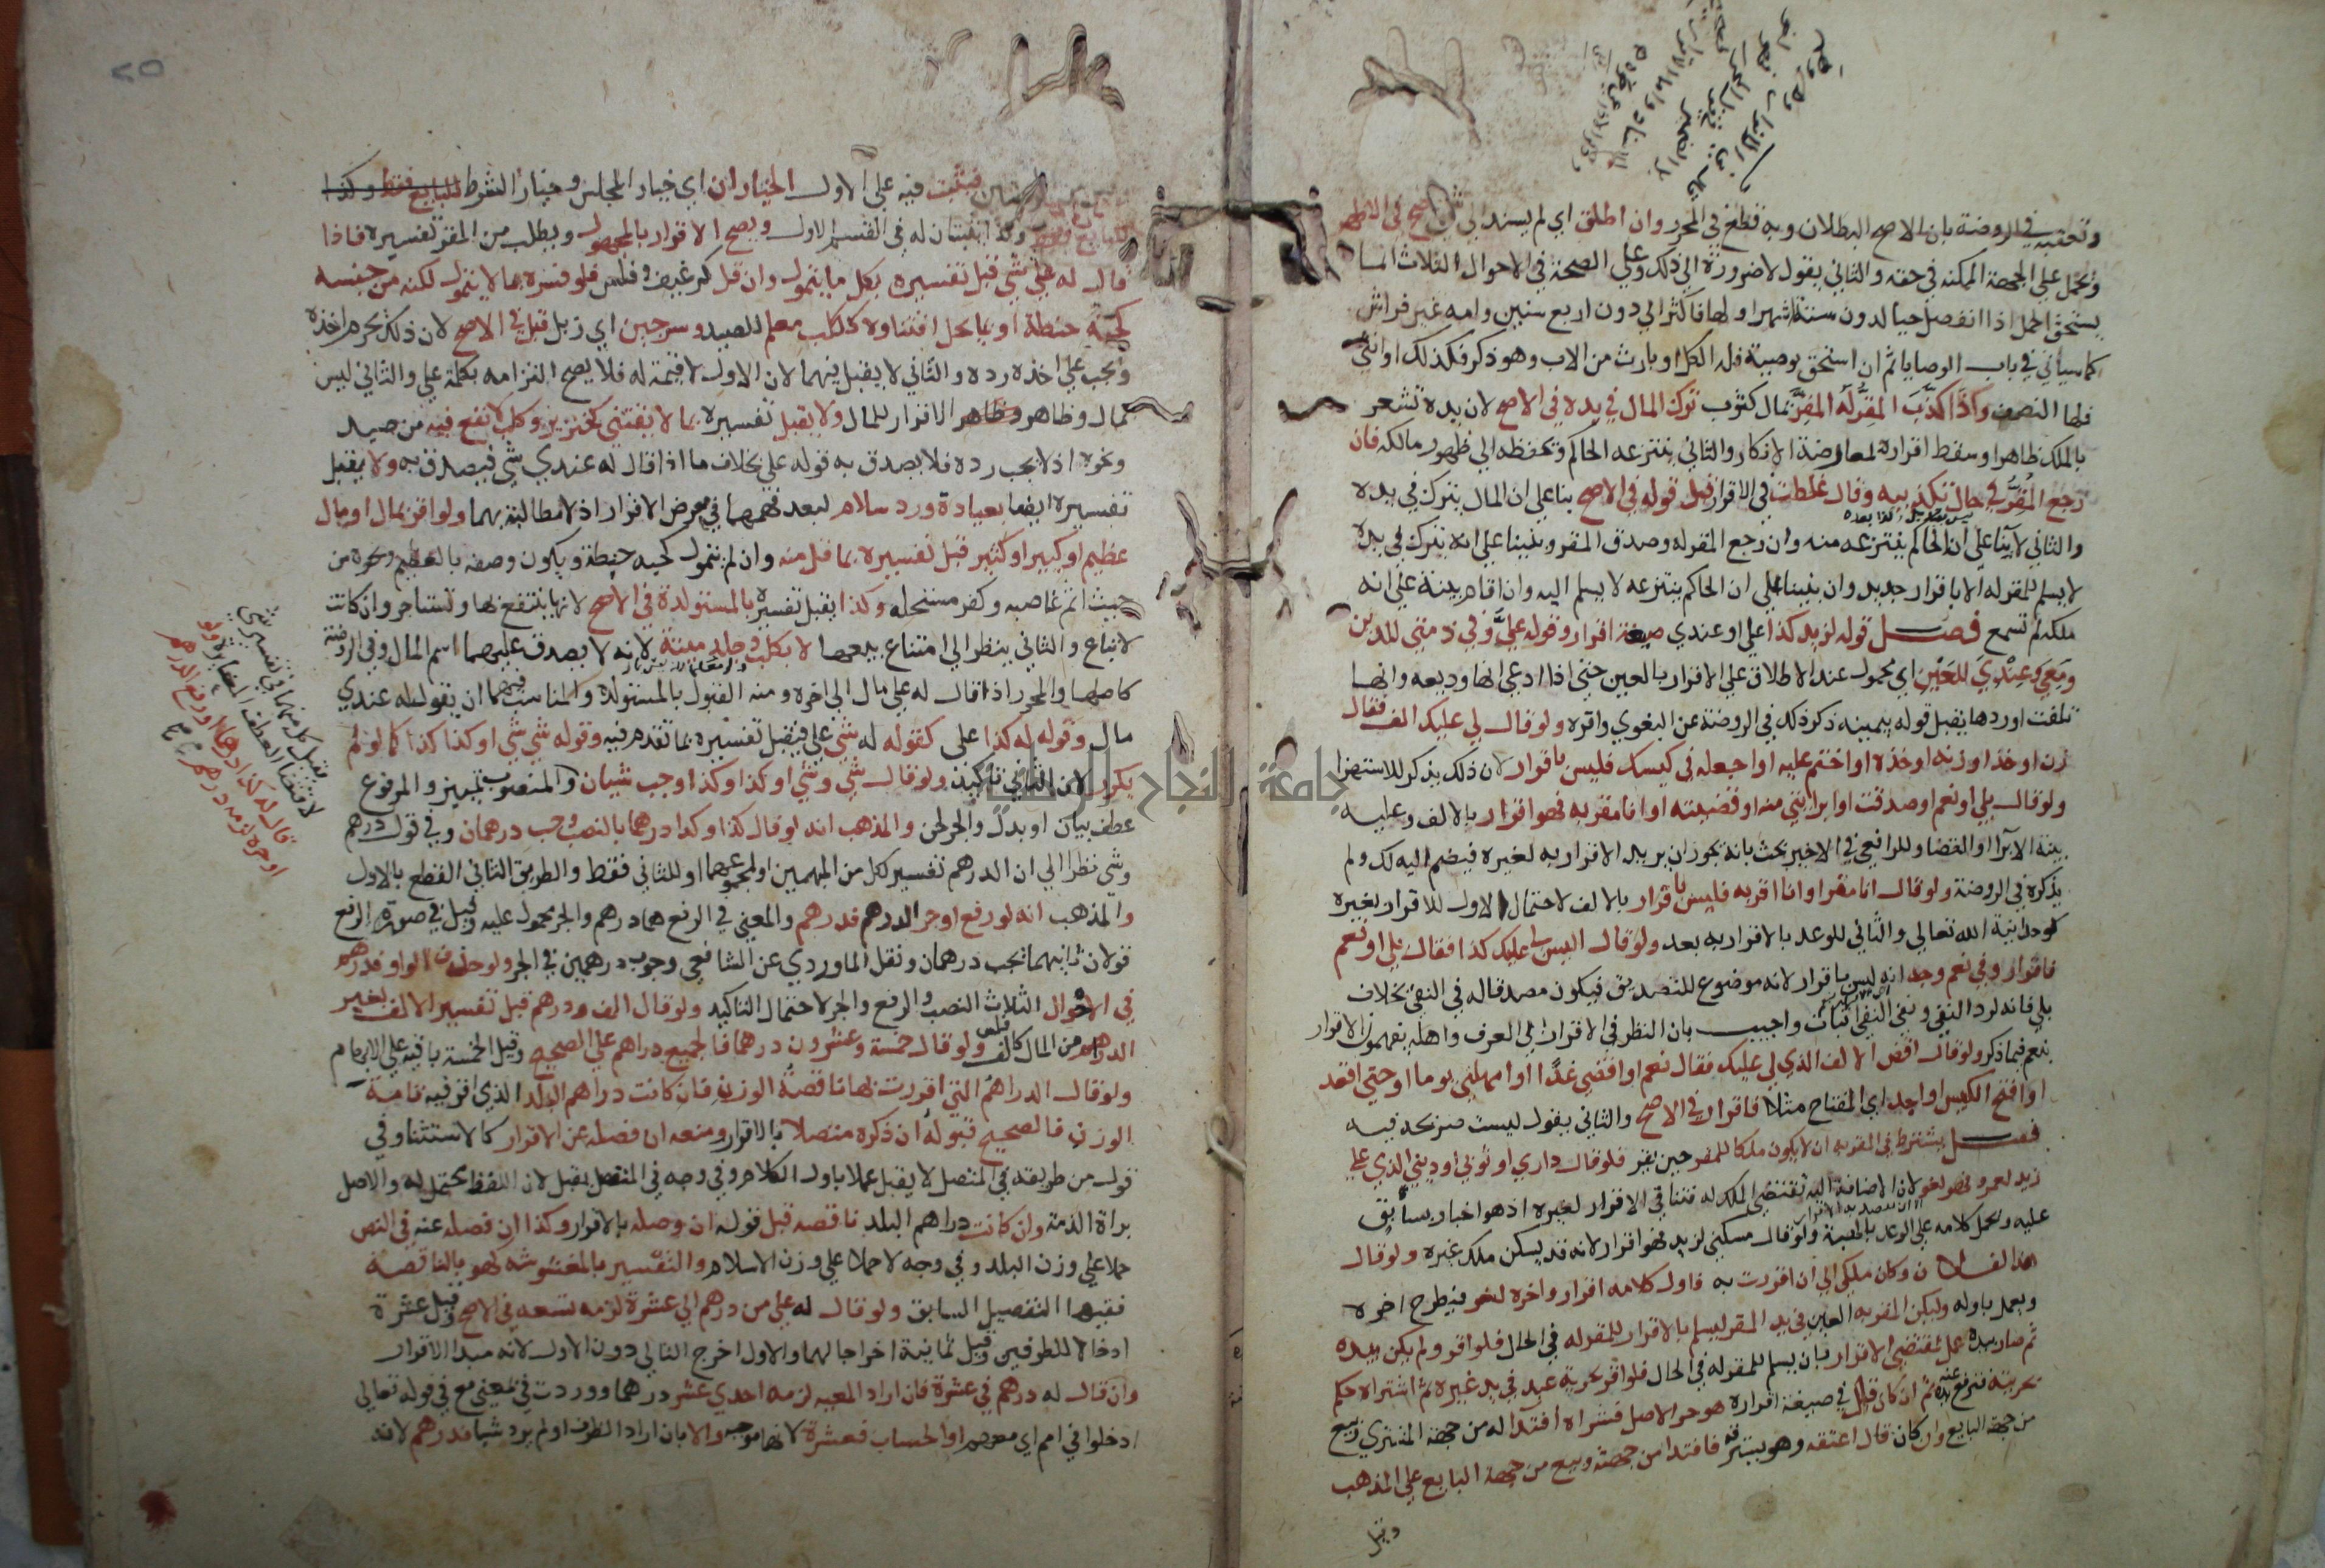 وتعقبه في الروضة بان الاصح البطلان وبه قطع في المحرر وان اطلق اي لم يسند الي شي صح في الاظهر
ويحمل علي الجهة الممكنه في حقه والثاني يقول لا ضرورة الي ذلك وعلي الصحة في الاحوال الثلاث انما
يستحق الحمل اذا انفصل حيا لدون ستة اشهر او لها فاكثر الي دون اربع سنين وامه غير فراش
كما سياتي في باب الوصايا ثم ان استحق بوصية فله الكل او بارث من الاب وهو ذكر فكذلك او انثي
فلها النصف واذا كذب المقر له المقر بمال كثوب ترك المال في يده في الاصح لان يده تشعر
بالملك ظاهرا وسقط اقراره لمعارضة الانكار والثاني ينتزعه الحاكم ويحفظه الي ظهور مالكه فان
رجع المقر في حال تكذيبه وقال غلطت في الاقرار قبل قوله في الاصح بنا علي ان المال يترك في يده
والثاني لا بنا علي ان الحاكم ينتزعه منه وان رجع المقر له وصدق المقر وبنينا علي انه يترك في يده
لا يسلم للمقر له الا باقرار جديد وان بنينا علي ان الحاكم ينتزعه لا يسلم اليه وان اقام بينة علي انه
ملكه لم تسمع فصل قوله لزيد كذا علي او عندي صيغة اقرار وقوله علي وفي ذمتي للدين
ومعي وعندي للعين اي محمول عند الاطلاق علي الاقرار بالعين حتي اذا ادعي انها وديعه وانها
تلفت اوردها يقبل قوله بيمينه ذكر ذلك في الروضة عن البغوي واقره ولو قال لي عليك الف فقال
زن او خذ او زنه او خذه او اختم عليه او اجعله في كيسك فليس باقرار لان ذلك يذكر للاستهزا
ولو قال بلي او نعم او صدقت او ابراتني منه او قضيته او انا مقر به فهو اقرار بالالف وعليه
بينة الابرا او القضا وللرافعي في الاخير بحث بانه يجوز ان يريد الاقرار به لغيره فيضم اليه لك ولم
يذكره في الروضة ولو قال انا مقر او انا اقر به فليس باقرار بالالف لاحتمال الاول للاقرار بغيره
كوحدانية الله تعالي والثاني للوعد بالاقرار به بعد ولو قال اليس لي عليك كذا فقال بلي او نعم
فاقرار وفي نعم وجه انه ليس باقرار لانه موضوع للتصديق فيكون مصدقا له في النفي بخلاف
بلي فانه لرد النفي ونفي النفي اثبات واجيب بان النظر في الاقرار الي العرف واهله يفهمون الاقرار
بنعم فيما ذكر ولو قال اقض الالف الذي لي عليك فقال نعم او اقضي غدا او امهلني يوما او حتي اقعد
او افتح الكيس او اجد اي المفتاح مثلا فاقرار في الاصح والثاني يقول ليست صريحة فيه
فصل يشترط في المقر به ان لا يكون ملكا للمقر حين يقر فلو قال داري او ثوبي او ديني الذي علي
زيد لعمرو فهو لغو لان الاضافة اليه تقتضي الملك له فتنافي الاقرار لغيره اذ هو اخبار بسابق
عليه ويحمل كلامه علي الوعد بالهبة ولو قال مسكني لزيد فهو اقرار لانه قد يسكن ملك غيره ولو قال
هذا لفلان وكان ملكي الي ان اقررت به فاول كلامه اقرار واخره لغو فيطرح اخره
ويعمل باوله وليكن المقر به العين في يد المقر ليسلم بالاقرار للمقر له في الحال فلو اقر ولم يكن بيده
ثم صار بيده عمل بمقتضي الاقرار بان يسلم للمقر له في الحال فلو اقر بحرية عبد في يد غيره ثم اشتراه حكم
بحريته فترفع يده عنه ثم ان كان قال في صيغة اقراره هو حر الاصل فشراه افتدا له من جهة المشتري وبيع
من جهة البايع وان كان قال اعتقه وهو يسترقه فافتدا من جهته وبيع من جهة البايع علي المذهب
وقيل
٢٥
فيثبت فيه علي الاول الخياران اي خيار المجلس وخيار الشرط للبايع فقط وكذا
للبايع فقط وكذا يثبتان له في القسم الاول ويصح الاقرار بالمجهول ويطلب من المقر تفسيره فاذا
قال له علي شي قبل تفسيره بكل ما يتمول وان قل كرغيف وفلس فلو فسره بما لا يتمول لكنه من جنسه
كحبة حنطة او بما يحل اقتناوه ككلب معلم للصيد وسرجين اي زبل قبل في الاصح لان ذلك يحرم اخذه
ويجب علي اخذه رده والثاني لا يقبل فيهما لان الاول لا قيمة له فلا يصح التزامه بكلمة علي والثاني ليس
بمال وظاهر وظاهر الاقرار للمال ولا يقبل تفسيره بما لا يقتني كخنزير وكلب لا نفع فيه من صيد
ونحوه اذ لا يجب رده فلا يصدق به قوله علي بخلاف ما اذا قال له عندي شي فيصدق به ولا يقبل
تفسيره ايضا بعيادة ورد سلام لبعد فهمهما في معرض الاقرار اذ لا مطالبة بهما ولو اقر بمال او مال
عظيم او كبير او كثير قبل تفسيره بما قل منه وان لم يتمول كحبه حنطة ويكون وصفه بالعظيم ونحوه من
حيث اثم غاصبه وكفر مستحله وكذا يقبل تفسيره بالمستولدة في الاصح لانها ينتفع بها وتستاجر وان كانت
لا تباع والثاني ينظر الي امتناع بيعها لا بكلب وجلد ميتة لانه لا يصدق عليهما اسم المال وفي الروضة
كاصلها والمحرر اذا قال له علي مال الي اخره ومنه القبول بالمستولدة والمناسب فيهما ان يقول له عندي
مال وقوله له كذا علي كقوله له شي علي فيقبل تفسيره بما تقدم فيه وقوله شي شي او كذا كذا كما لو لم
يكرر لان الثاني تاكيد ولو قال شي وشي او كذا وكذا وجب شيان والمنصوب تمييز والمرفوع
عطف بيان او بدل والجر لحن والمذهب انه لو قال كذا وكذا درهما بالنصب وجب درهمان وفي قول درهم
وشي نظرا الي ان الدرهم تفسير لكل من المبهمين او لمجموعهما او للثاني فقط والطريق الثاني القطع بالاول
والمذهب انه لو رفع او جر الدرهم فدرهم والمعني في الرفع هما درهم والجر محمول عليه وقيل في صورة الرفع
قولان ثانيهما يجب درهمان ونقل الماوردي عن الشافعي وجوب درهمين في الجر ولو حذف الواو فدرهم
في الاحوال الثلاث النصب والرفع والجر لاحتمال التاكيد ولو قال الف ودرهم قبل تفسير الالف بغير
الدراهم من المال كالف فلس ولو قال خمسة وعشرون درهما فالجميع دراهم علي الصحيح وقيل الخمسة باقية علي الابهام
ولو قال الدراهم التي اقررت بها ناقصة الوزن فان كانت دراهم البلد الذي اقر فيه تامة
الوزن فالصحيح قبوله ان ذكره متصلا بالاقرار ومنعه ان فصله عن الاقرار كالاستثنا وفي
قول من طريقه في المتصل لا يقبل عملا باول الكلام وفي وجه في المنفصل يقبل لان اللفظ يحتمل له والاصل
براة الذمة وان كانت دراهم البلد ناقصه قبل قوله ان وصله بالاقرار وكذا ان فصله عنه في النص
حملا علي وزن البلد وفي وجه لا حملا علي وزن الاسلام والتفسير بالمغشوشه كهو بالناقصة
ففيها التفصيل السابق ولو قال له علي من درهم الي عشرة لزمه تسعه في الاصح وقيل عشرة
ادخالا للطرفين وقيل ثمانية اخراجا لهما والاول اخرج الثاني دون الاول لانه مبدا الاقرار
وان قال له درهم في عشرة فان اراد المعيه لزمه احدي عشر درهما ووردت في بمعني مع في قوله تعالي
ادخلوا في امم اي معهم او الحساب فعشرة لانها موجبه والا بان اراد الظرف او لم يرد شيا فدرهم لانه
فيقبل كل منهما في تفسير شي
لاقتضا العطف المغايرة ولو
قال له كذا درهما او رفع الدرهم
او جره لزمه درهم
جامعة النجاح الوطنية